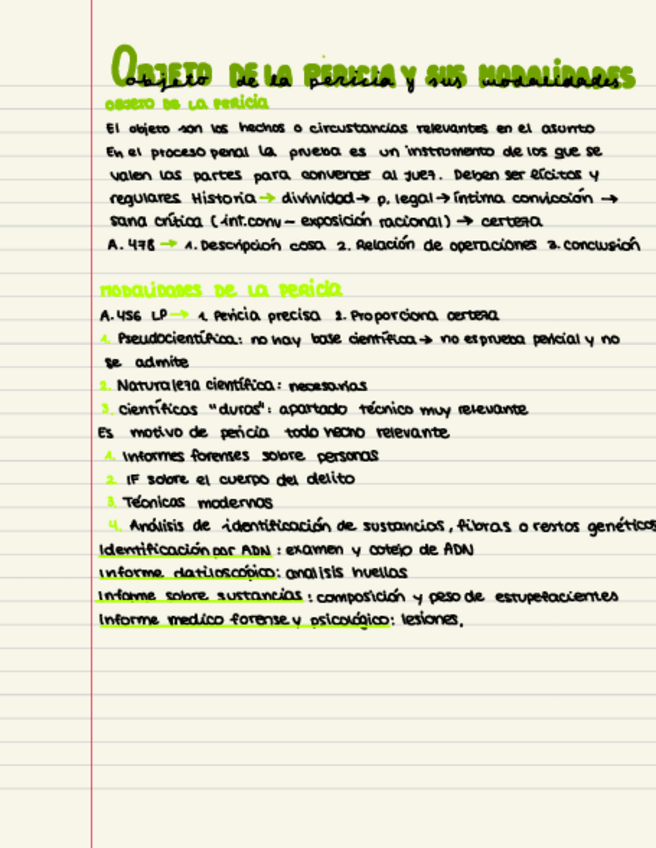 Objeto de la pericia y sus modalidades
OBJETO DE LA PERICIA
El objeto son los hechos o circustancias relevantes en el asunto
En el proceso penal la prueba es un instrumento de los que se
valen las partes para convencer al juez. Deben ser lícitos y
regulares Historia → divinidad → p. legal → íntima convicción →
sana crítica (int.conv - exposición racional) → certeza
A. 478 → 1. Descripcion cosa 2. Relación de operaciones 3. conclusión
MODALIDADES DE LA PERICIA
A. 456 LP → 1. Pericia precisa 2. Proporciona certeza
1. Pseudocientífica: no hay base científica → no es prueba pericial y no
se admite
2. Naturaleza científica: necesarias
3. científicas "duras": apartado técnico muy relevante
Es motivo de pericia todo hecho relevante
1. Informes forenses sobre personas
2. IF sobre el cuerpo del delito
3. Técnicas modernas
4. Análisis de identificación de sustancias, fibras o restos genéticos
Identificación por ADN: examen y cotejo de ADN
Informe datiloscópico: analisis huellas
Informe sobre sustancias: composición y peso de estupefacientes
Informe medico forense y psicológico: lesiones,